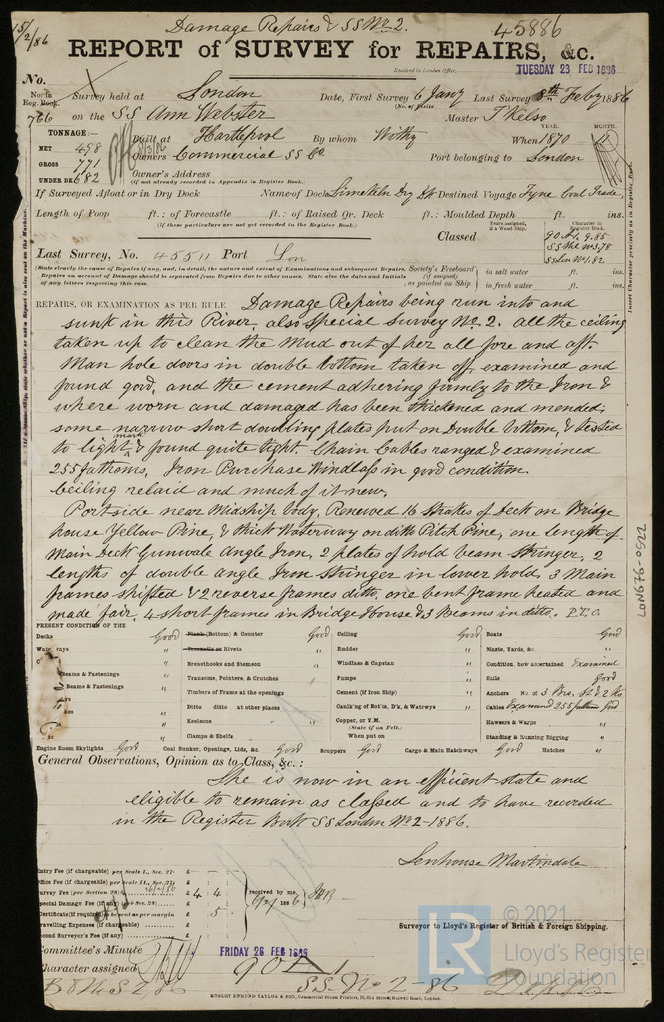 15/2/86
Damage Repairs & SS No 2.
45886
REPORT of SURVEY for REPAIRS, &c.
Received in London Office, TUESDAY 23 FEB 1886
No.
No. in Reg. Book. 766
Survey held at London Date, First Survey 6 Jany Last Survey 8th Feby 1886
(No. of Visits
on the SS Ann Webster Master T Kelso
TONNAGE:—
NET 498
GROSS 771
UNDER DK 682
Built at Hartlepool By whom Withy When 1870
YEAR. MONTH.
Owners Commercial SS Co Port belonging to London
Owners' Address
(if not already recorded in Appendix to Register Book.)
If Surveyed Afloat or in Dry Dock Name of Dock Limekiln Dry Dk Destined Voyage Tyne Coal Trade,
Length of Poop ft.: of Forecastle ft.: of Raised Qr. Deck ft.: Moulded Depth ft. ins.
(if these particulars are not yet recorded in the Register Book.)
Classed
Years assigned, if a Wood Ship.
Character in Register Book.
90 A1. 9.85
SS No 3.78
SS Lon No 1.82
Last Survey, No. 45511 Port Lon
(State clearly the cause of Repairs if any, and, in detail, the nature and extent of Examinations and subsequent Repairs.
Repairs on account of Damage should be separated from Repairs due to other causes. State also the dates and Initials
of any letters respecting this case.
Society's Freeboard (if assigned) as painted on Ship
in salt water ft. ins.
in fresh water ft. ins.
Insert Character precisely as in Register Book.
REPAIRS, OR EXAMINATION AS PER RULE Damage Repairs being run into and
sunk in this River, also Special Survey No. 2. All the ceiling
taken up to clean the Mud out of her all fore and aft.
Man hole doors in double bottom taken off, examined and
found good, and the cement adhering firmly to the Iron &
where worn and damaged has been thickened and mended,
some narrow short doubling plates put on Double bottom, & tested
to light mark & found quite tight. Chain Cables ranged & examined
255 fathoms, Iron Purchase Windlass in good condition.
Ceiling relaid and much of it new.
Portside near Midship body, Renewed 16 Strakes of Deck on Bridge
house Yellow Pine, & thick Waterway on ditto Pitch Pine, one length of
Main Deck Gunwale Angle Iron, 2 plates of hold beam Stringer, 2
lengths of double angle Iron Stringer in lower hold, 3 Main
frames shifted & 2 reverse frames ditto, one bent frame heated and
made fair, 4 short frames in Bridge House & 3 Beams in ditto. P.T.O.
PRESENT CONDITION OF THE
Decks Good
Plank (Bottom) & Counter Good
Ceiling Good
Boats Good
Waterways "
Treenails or Rivets "
Rudder "
Masts, Yards, &c. "
Breasthooks and Stemson "
Windlass & Capstan "
Condition, how ascertained Examined
Beams & Fastenings "
Transoms, Pointers, & Crutches
Pumps "
Sails Good
Beams & Fastenings "
Timbers of Frame at the openings
Cement (if Iron Ship) "
Anchors No. of 3 Brs. St & 2 Ks.
Ditto ditto at other places
Caulking of Bot'm, D'k, & Watrwys "
Cables Examined 255 fathoms Good
Keelsons "
Copper, or Y.M.
(State if on Felt.)
Hawsers & Warps "
Clamps & Shelfs
When put on
Standing & Running Rigging "
Engine Room Skylights Good Coal Bunker, Openings, Lids, &c. Good Scuppers Good Cargo & Main Hatchways Good Hatches "
General Observations, Opinion as to Class, &c.:
She is now in an efficient state and
eligible to remain as classed and to have recorded
in the Register Book SS London No 2-1886.
Senhouse Martindale
Surveyor to Lloyd's Register of British & Foreign Shipping.
Entry Fee (if chargeable) per Scale I., Sec. 27. £
Office Fee (if chargeable) per Scale II., Sec. 27. £
Survey Fee (per Section 28) £ 4 4
Special Damage Fee (if any) £
Certificate (if required) £ 5
Travelling Expenses (if chargeable) £
Second Surveyor's Fee (if any) £
received by me,
Committee's Minute FRIDAY 26 FEB 1886
Character assigned 90 A 1
SS No 2-86
B & M S 2 86
ROBERT EDMUND TAYLOR & SON, Commercial Steam Printers, 19, Old Street, Goswell Road, London.
LON676-0922
LR © 2021
Lloyd's Register
Foundation